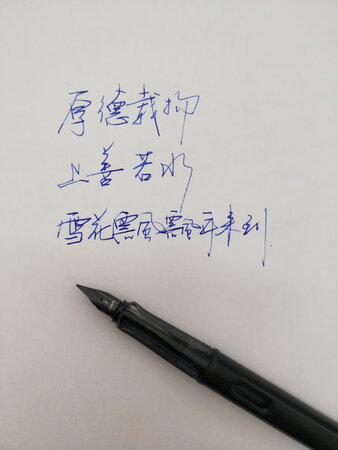 厚德载物
上善若水
雪花飘飘年来到